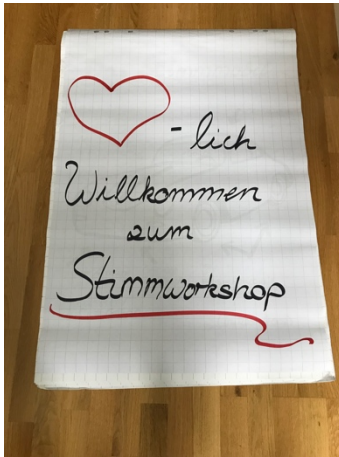 -lich
Willkommen
zum
Stimmworkshop